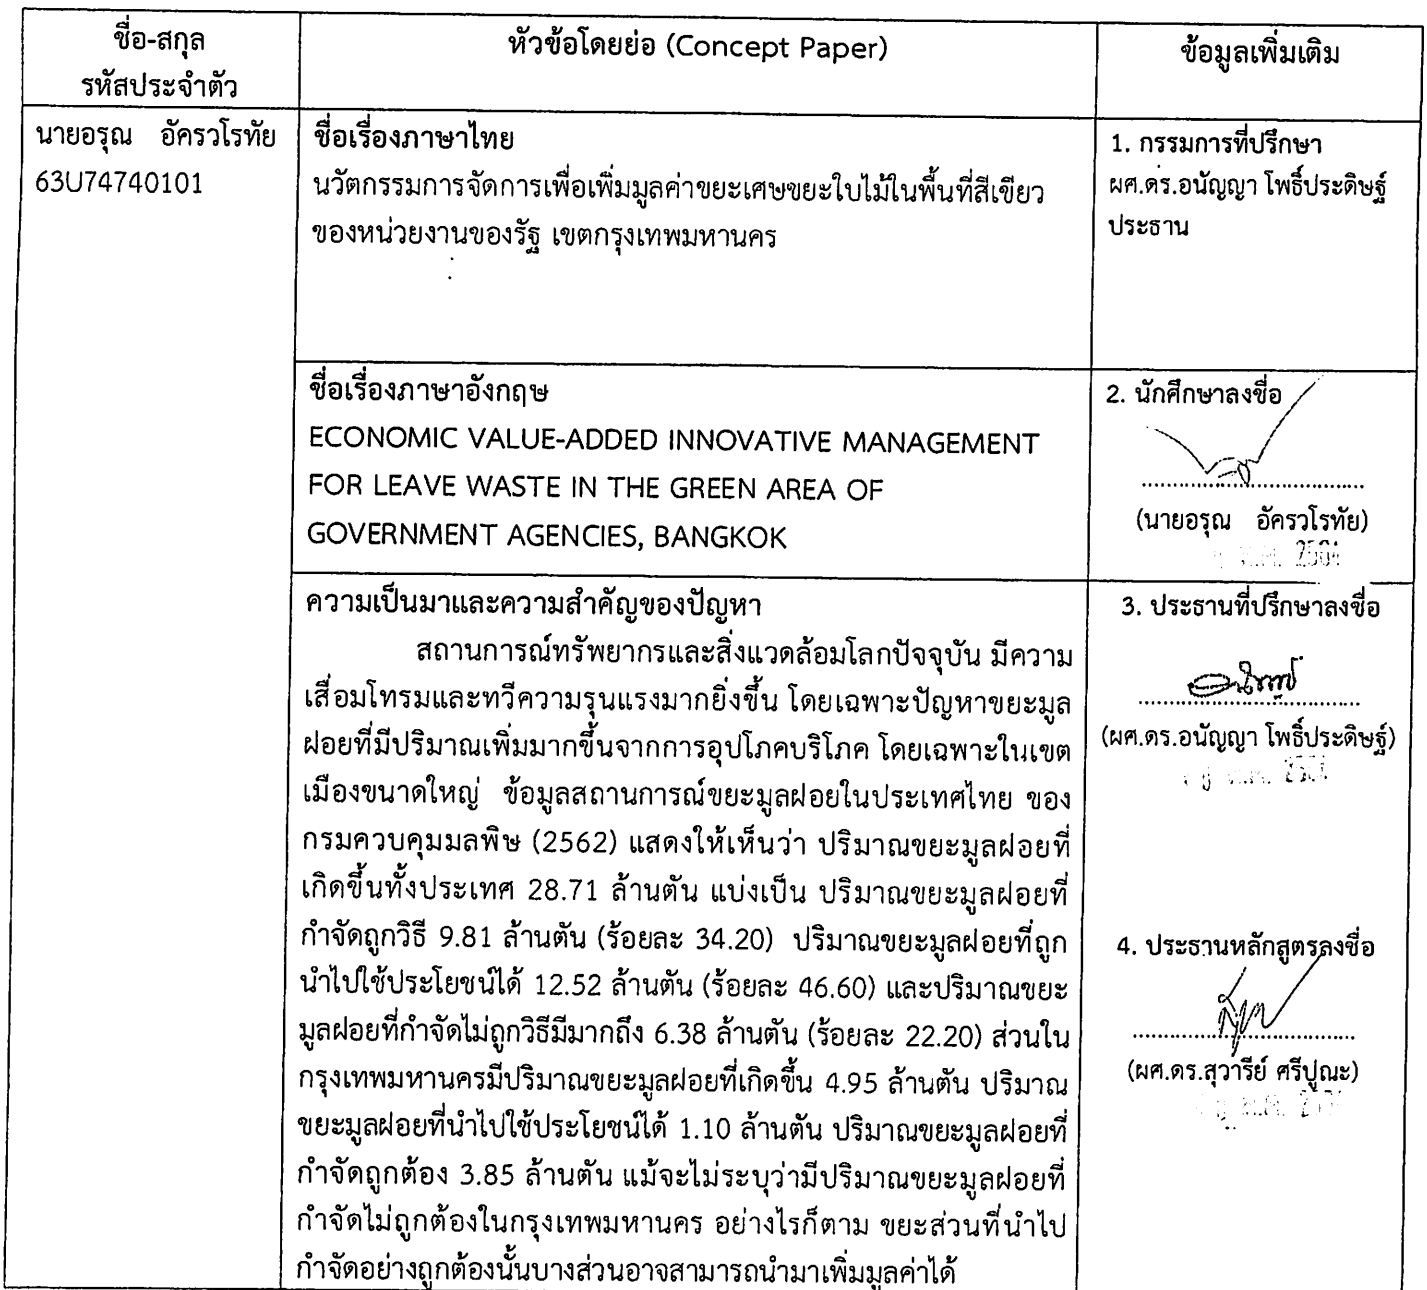 ชื่อ-สกุล
รหัสประจำตัว
หัวข้อโดยย่อ (Concept Paper)
ข้อมูลเพิ่มเติม
นายอรุณ อัครวโรทัย
63U74740101
ชื่อเรื่องภาษาไทย
นวัตกรรมการจัดการเพื่อเพิ่มมูลค่าขยะเศษขยะใบไม้ในพื้นที่สีเขียว
ของหน่วยงานของรัฐ เขตกรุงเทพมหานคร
1. กรรมการที่ปรึกษา
ผศ.ดร.อนัญญา โพธิ์ประดิษฐ์
ประธาน
ชื่อเรื่องภาษาอังกฤษ
ECONOMIC VALUE-ADDED INNOVATIVE MANAGEMENT
FOR LEAVE WASTE IN THE GREEN AREA OF
GOVERNMENT AGENCIES, BANGKOK
2. นักศึกษาลงชื่อ
(นายอรุณ อัครวโรทัย)
ความเป็นมาและความสำคัญของปัญหา
สถานการณ์ทรัพยากรและสิ่งแวดล้อมโลกปัจจุบัน มีความ
เสื่อมโทรมและทวีความรุนแรงมากยิ่งขึ้น โดยเฉพาะปัญหาขยะมูล
ฝอยที่มีปริมาณเพิ่มมากขึ้นจากการอุปโภคบริโภค โดยเฉพาะในเขต
เมืองขนาดใหญ่ ข้อมูลสถานการณ์ขยะมูลฝอยในประเทศไทย ของ
กรมควบคุมมลพิษ (2562) แสดงให้เห็นว่า ปริมาณขยะมูลฝอยที่
เกิดขึ้นทั้งประเทศ 28.71 ล้านตัน แบ่งเป็น ปริมาณขยะมูลฝอยที่
กำจัดถูกวิธี 9.81 ล้านตัน (ร้อยละ 34.20) ปริมาณขยะมูลฝอยที่ถูก
นำไปใช้ประโยชน์ได้ 12.52 ล้านตัน (ร้อยละ 46.60) และปริมาณขยะ
มูลฝอยที่กำจัดไม่ถูกวิธีมีมากถึง 6.38 ล้านตัน (ร้อยละ 22.20) ส่วนใน
กรุงเทพมหานครมีปริมาณขยะมูลฝอยที่เกิดขึ้น 4.95 ล้านตัน ปริมาณ
ขยะมูลฝอยที่นำไปใช้ประโยชน์ได้ 1.10 ล้านตัน ปริมาณขยะมูลฝอยที่
กำจัดถูกต้อง 3.85 ล้านตัน แม้จะไม่ระบุว่ามีปริมาณขยะมูลฝอยที่
กำจัดไม่ถูกต้องในกรุงเทพมหานคร อย่างไรก็ตาม ขยะส่วนที่นำไป
กำจัดอย่างถูกต้องนั้นบางส่วนอาจสามารถนำมาเพิ่มมูลค่าได้
3. ประธานที่ปรึกษาลงชื่อ
(ผศ.ดร.อนัญญา โพธิ์ประดิษฐ์)
4. ประธานหลักสูตรลงชื่อ
(ผศ.ดร.สุวารีย์ ศรีปูณะ)